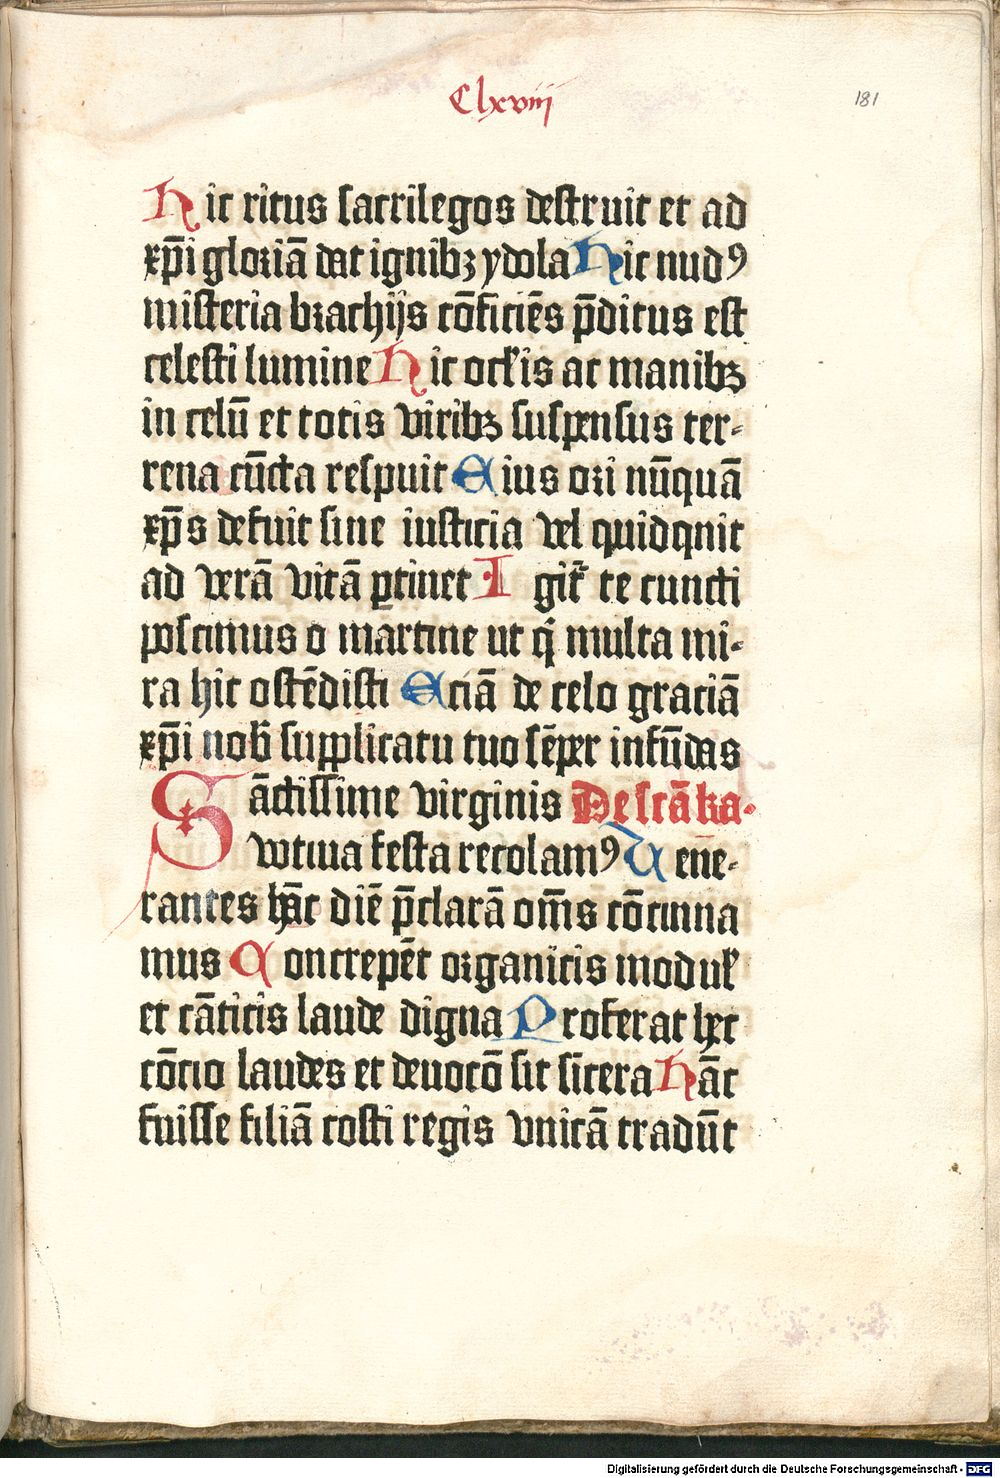 Clxviij
181
Hic ritus sacrilegos destruit et ad
xp̄i gloriā dat ignibꝫ ydola Hic nudꝰ
misteria brachijs cōficiēs p̄ditus est
celesti lumine Hic ocl̓is ac manibꝫ
in celū et totis viribꝫ suspensus ter-
rena cūcta respuit Eius ori nūquā
xp̄s defuit siue iusticia vel quidquit
ad verā vitā ꝑtinet Igit̄ te cuncti
poscimus o martine ut q̄ multa mi-
ra hic ostēdisti Eciā de celo graciā
xp̄i nob̄ supplicatu tuo sēper infūdas
Sāctissime virginis De scā ka.
votiua festa recolamꝰ Uen̄e-
rantes hāc diē p̄clarā om̄s cōcinna
mus Concrepēt organicis modul̓
et cāticis laude digna Proferat hec
cōcio laudes et deuocō sit sīcera Hāc
fuisse filiā costi regis vnicā tradūt
Digitalisierung gefördert durch die Deutsche Forschungsgemeinschaft - DFG